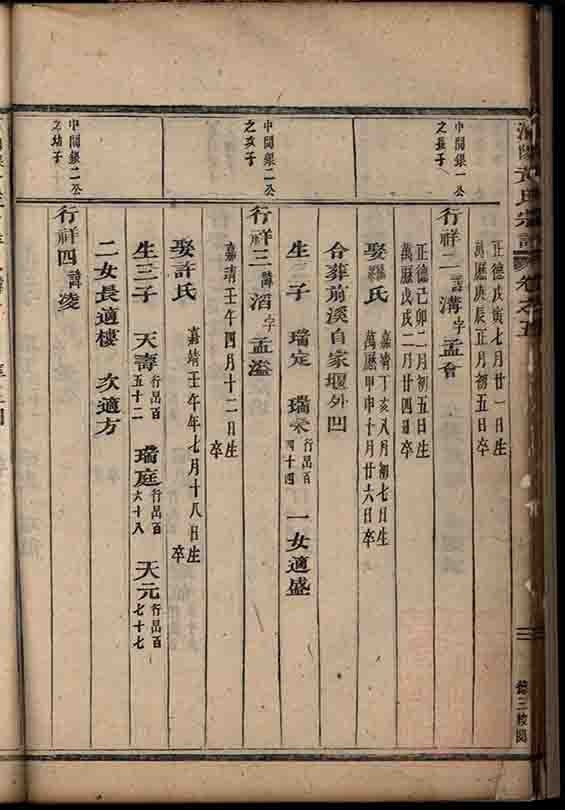 黃氏宗譜 卷之五
德三校閱
中閣銀一公
之長子
正德戊寅七月廿一日生
萬曆庚辰正月初五日卒
行祥二 諱溝 字孟會
正德己卯二月初五日生
萬曆戊戌二月廿四日卒
娶 氏 嘉靖丁亥八月初七日生
萬曆甲申十月廿六日卒
合葬前溪自家堰外凹
中閣銀二公
之次子
生二子 瑞定 瑞 行昂百四十四 一女適盛
行祥三 諱滔 字孟溢
嘉靖壬午四月十二日生
卒
娶許氏 嘉靖壬午年七月十八日生
卒
生三子 天壽 行昂百五十二 瑞庭 行昂百六十八 天元 行昂百七十七
二女長適樓 次適方
中閣銀二公
之 子
行祥四 諱淩